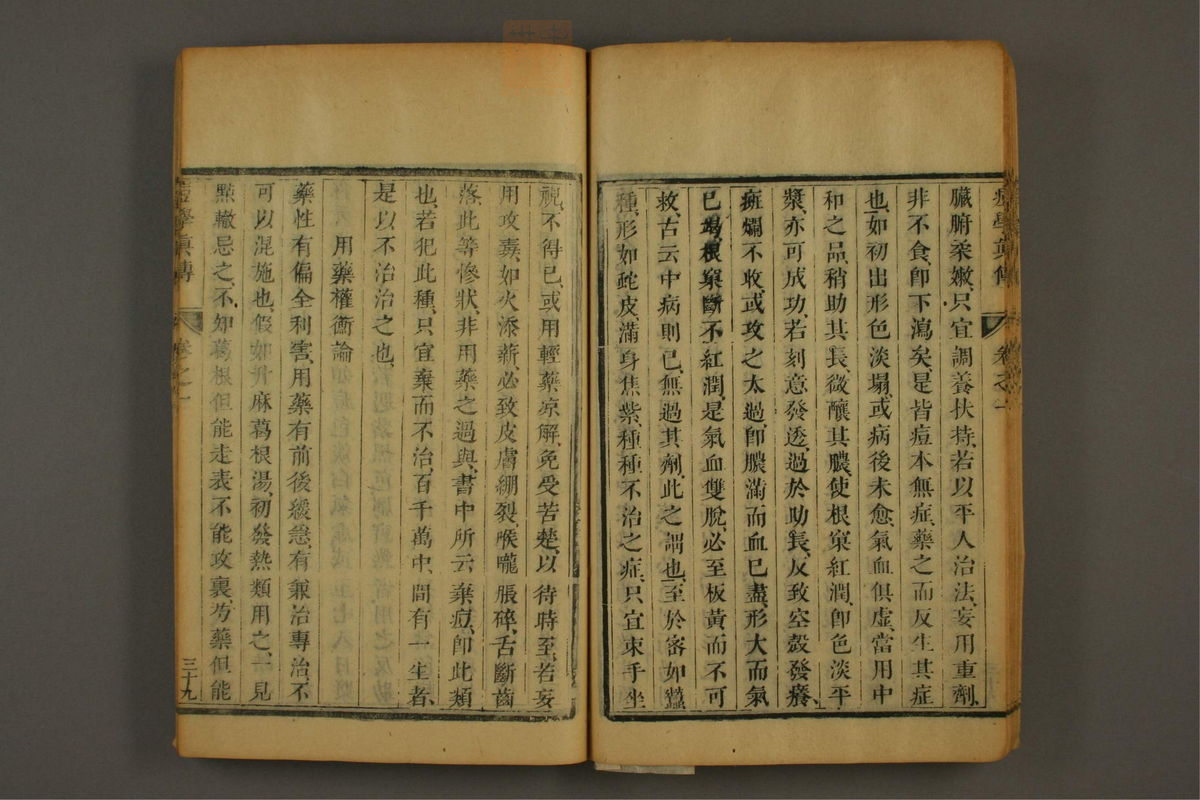 臟腑柔嫩、只宜調養扶持、若以平人治法、妄用重劑、
非不食、卽下瀉矣、是皆痘本無症、藥之而反生其症
也、如初出形色淡塌、或病後未愈、氣血俱虛、當用中
和之品、稍助其長、微釀其膿、使根窠紅潤、卽色淡平
漿、亦可成功、若刻意發透、過於助長、反致空殼發癢、
斑爛不收、或攻之太過、卽膿滿而血已盡、形大而氣
已竭、根窠斷不紅潤、是氣血雙脫、必至板黃而不可
救、古云中病則已、無過其劑、此之謂也、至於密如蠶
種、形如蛇皮、滿身焦紫、種種不治之症、只宜束手坐
痘學眞傳 卷之一
視、不得已、或用輕藥凉解、免受苦楚、以待時至、若妄
用攻毒、如火添薪、必致皮膚綳裂、喉嚨脹碎、舌斷齒
落、此等慘狀、非用藥之過與、書中所云棄痘、卽此類
也、若犯此種、只宜棄而不治、百千萬中、間有一生者、
是以不治治之也、
用藥權衡論
藥性有偏全利害、用藥有前後緩急、有兼治專治、不
可以混施也、假如升麻葛根湯、初發熱類用之、一見
點輙忌之、不知葛根但能走表、不能攻裏、芍藥但能
痘學眞傳 卷之一 三十九